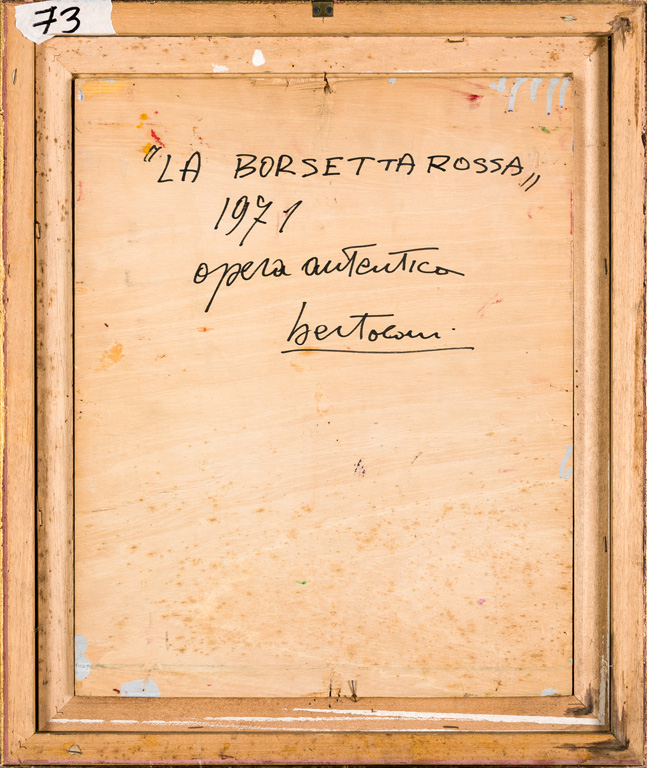 73
"LA BORSETTA ROSSA„
1971
opera autentica
bertoloni